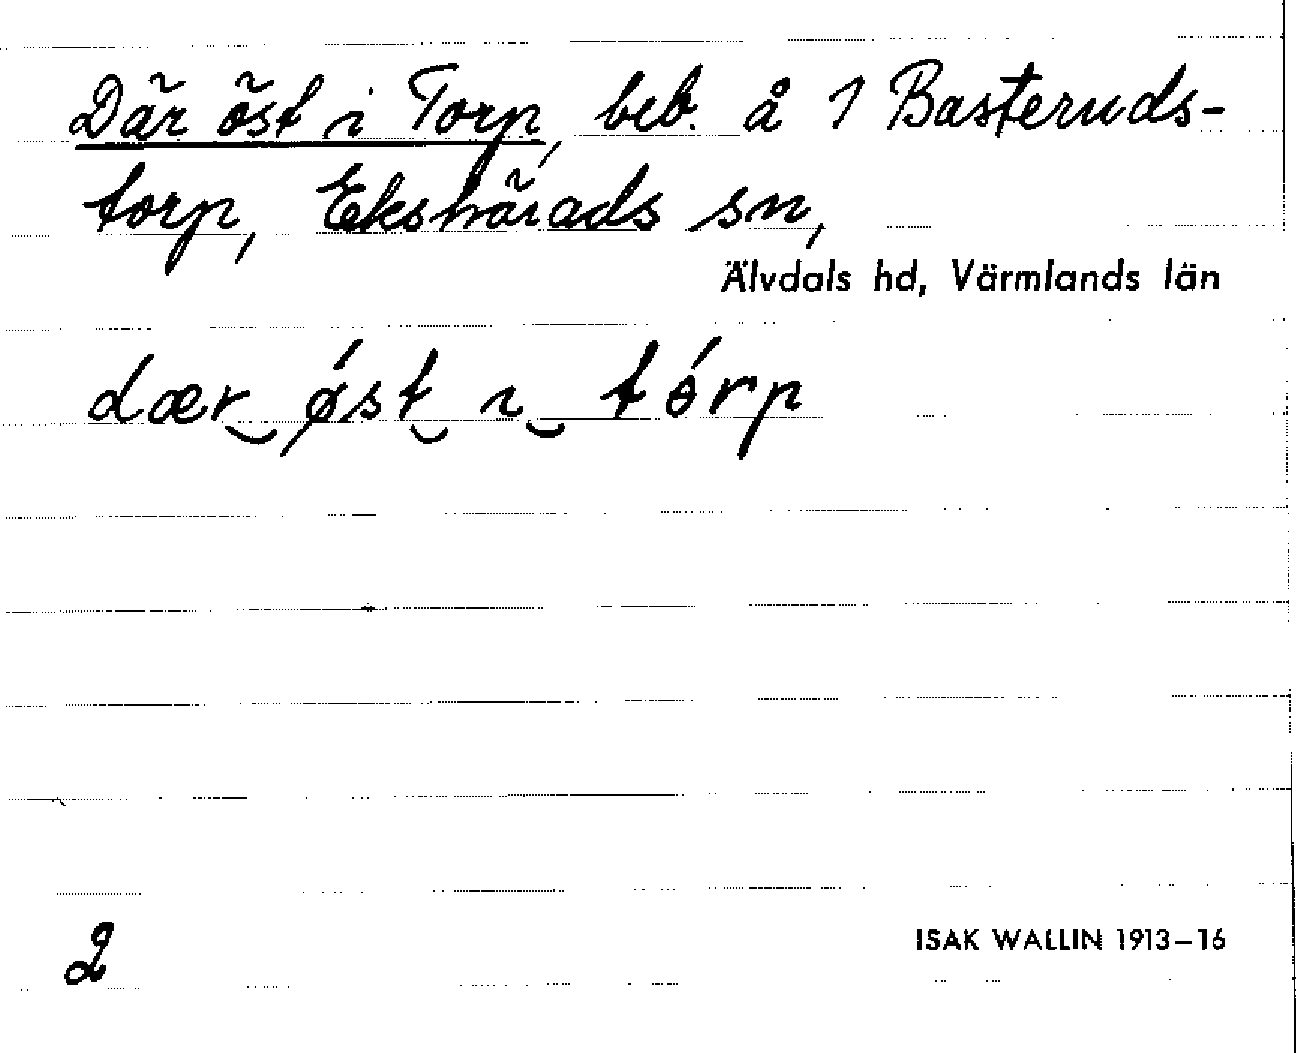 Där öst i Torp, beb. å 1 Basteruds-
torp, Ekshärads sn,
Älvdals hd, Värmlands län
dær‿ǿst‿ı‿tórp
2
ISAK WALLIN 1913–16